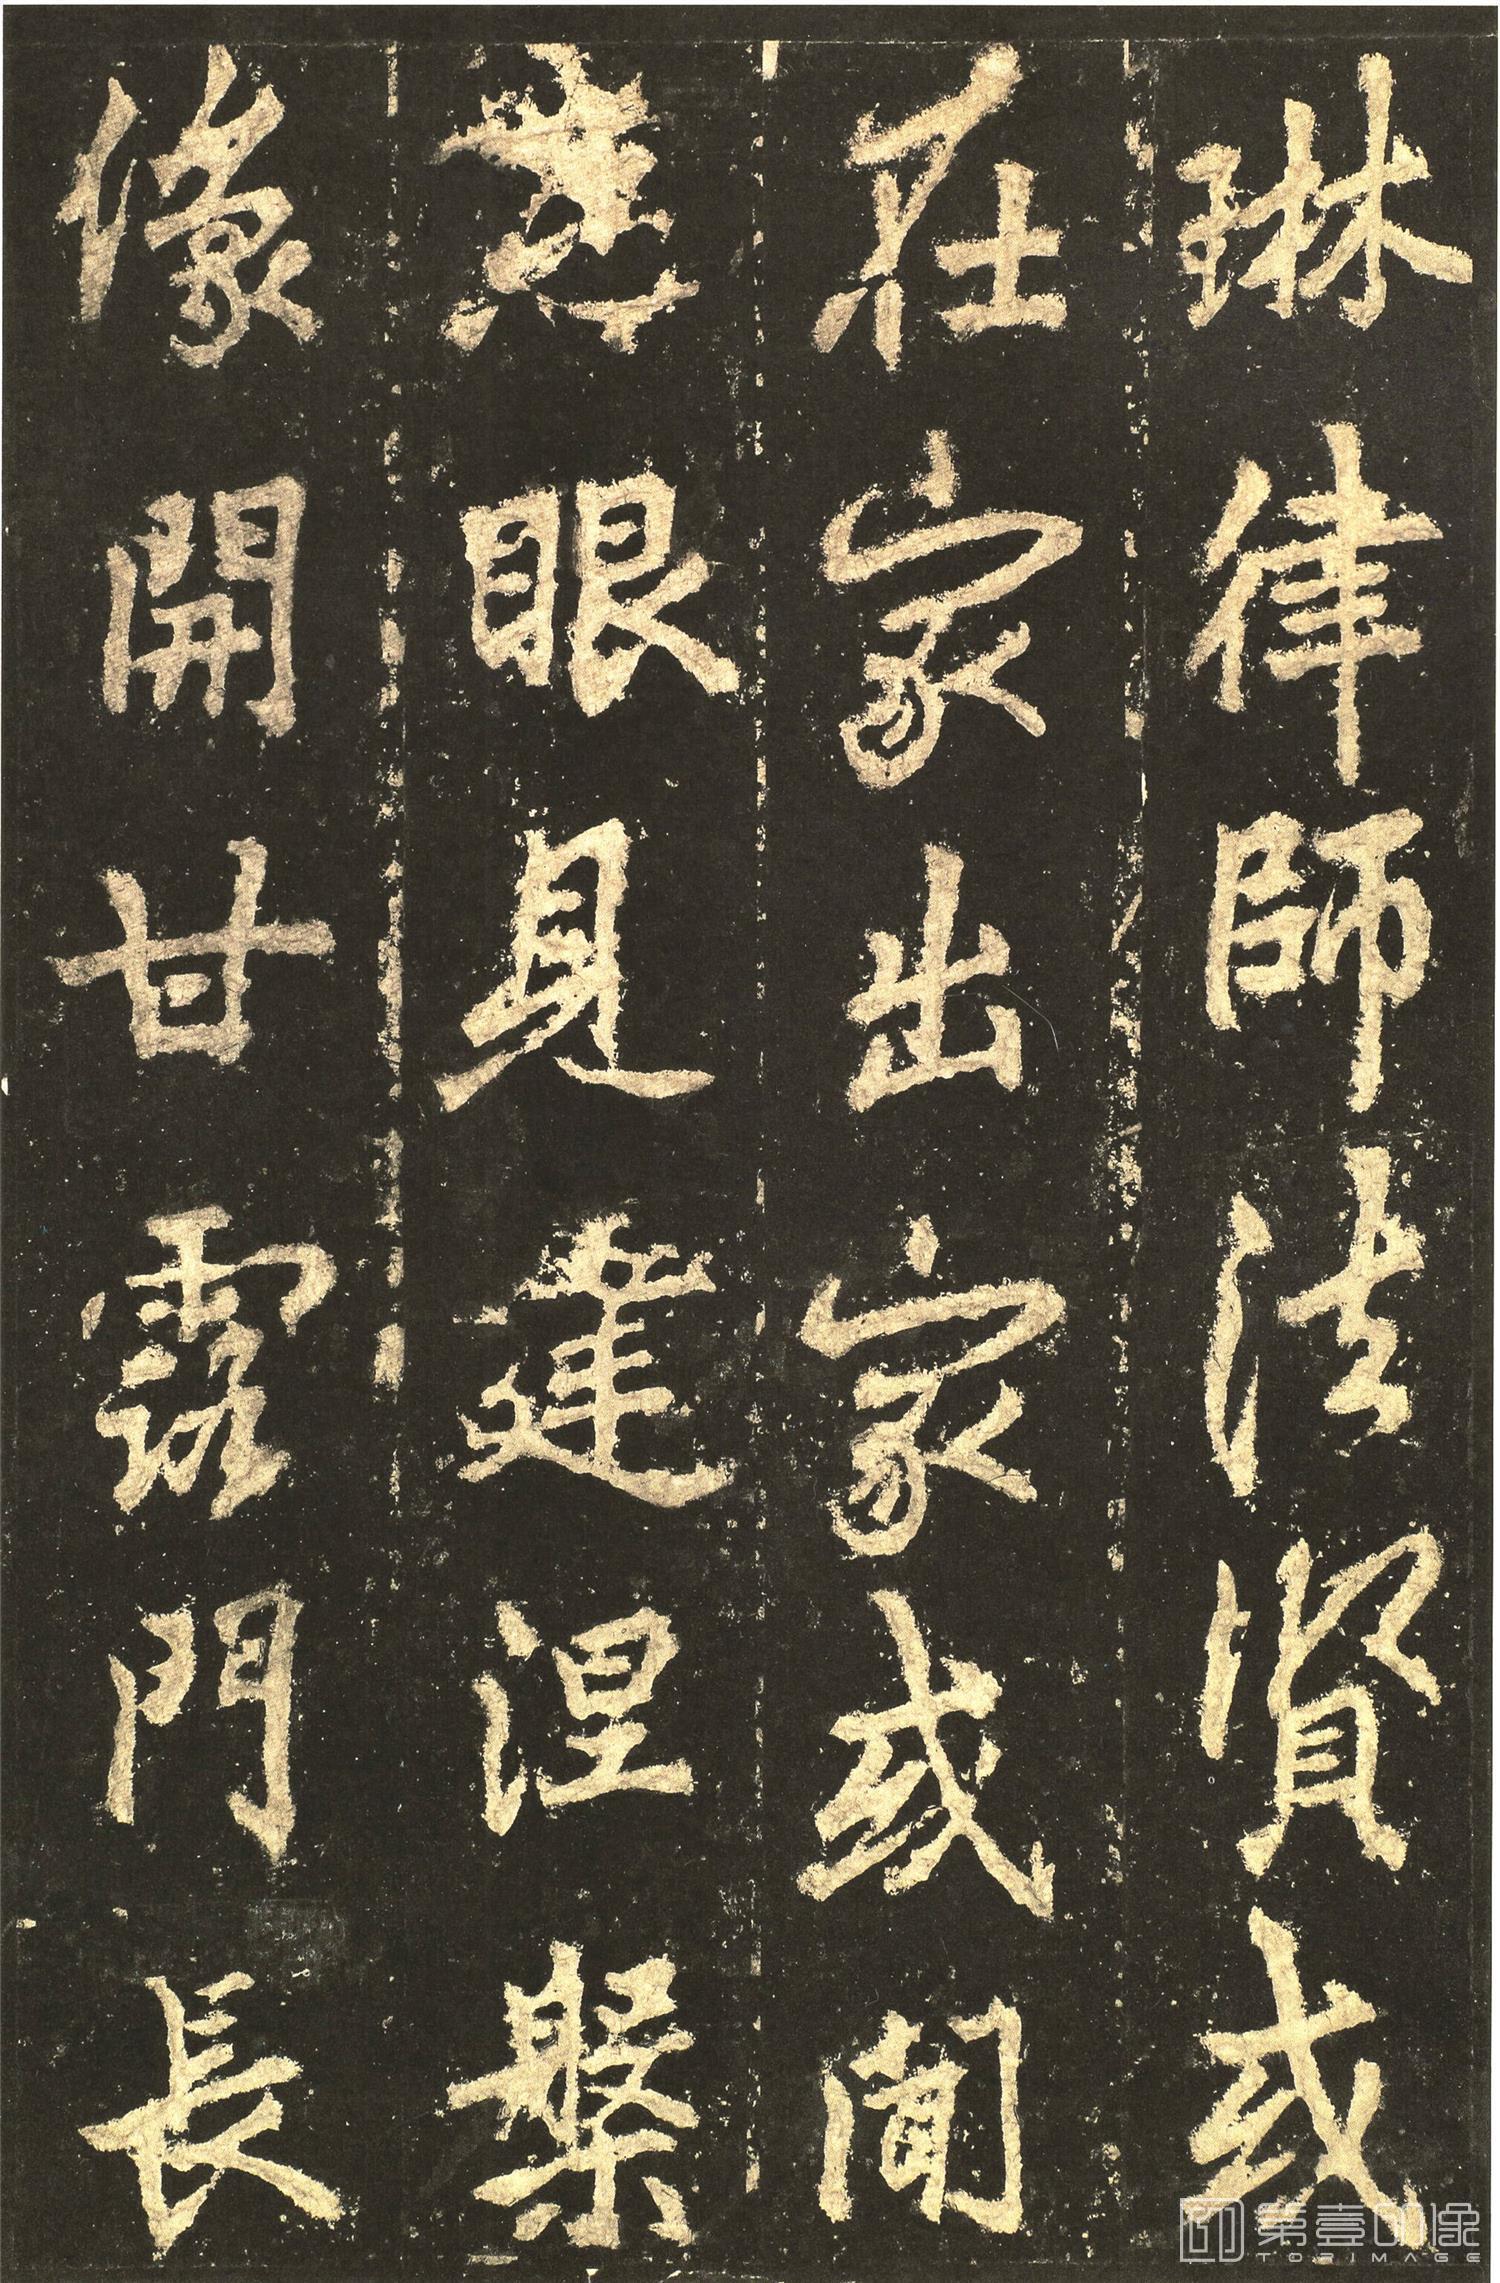 琳律師法賢或
在家出家或聞
眼見建涅槃
像開甘露門長
第壹印像
TOPIMAGE